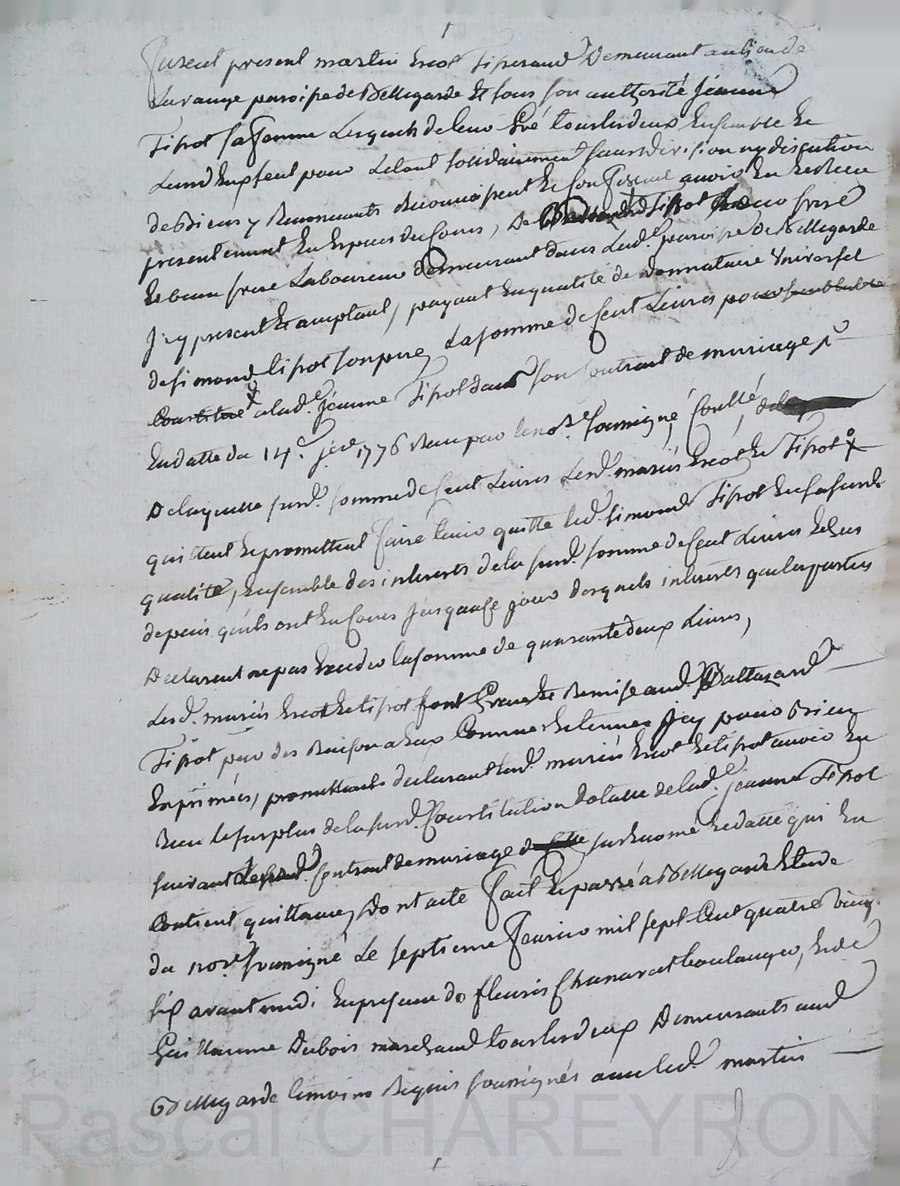 furent present martin Ercot Tisserand Demeurant au lieu de
Larange paroisse de Bellegarde Et sous son authorité jeanne
Tisot sa femme Lesquels de leur Gré tous les deux Ensemble Et
Lun d'Eux seul pour Le tout solidairement sans division ny discution
de Biens y Renonceants Reconnoissent Et Confessent avoir Eu Et Receu
presentement En Especes du Cours, De Tisot frere
Et beau frere Laboureur demeurant dans Lad.e paroisse de Bellegarde
jcy present Et acceptant, payant En qualité de donnataire Universel
de simond tisot son pere, La somme de Cent Livres pour semblable
Constitué a lad.e jeanne Tisot dans son Contrant de mariage
En datte du 14.e 1776 Receu par le no.re soussigné, Conllé,
De laquelle susd. somme de Cent Livres Lesd. mariés Ercot Et Tisot
quittent Et promettent faire tenir quitte led. simond Tisot En sa susd.
qualité, Ensemble des interets de la susd. somme de Cent Livres
depuis quils ont Eu Cours jusqua Ce jour desquels interets que les parties
Declarent ne pas Exceder la somme de quarante deux Livres,
Lesd. mariés Ercot Et tisot font Grace Et Remise aud. Baltazard
Tisot pour des Raisons a Eux Connues Et tenues jcy pour Bien
Exprimées, promettants declarant lesd. mariés Ercot Et tisot avoir Eu
Receu Le surplus de la susd. Constitution de lad.e jeanne Tisot
suivant Contrant de mariage susEnoncé Et datté qui En
Contient quittance, Dont acte fait Et passé a Bellegarde Etude
du no.re soussigné Le septieme fevrier mil sept Cent quatre vingt
six avant midi En presence de fleuris Chanavat boulanger, Et de
Guillaume Dubois marchand tous les deux Demeurants aud.
Bellegarde temoins Requis soussignés avec led. martin
Rascal CHAREYRON